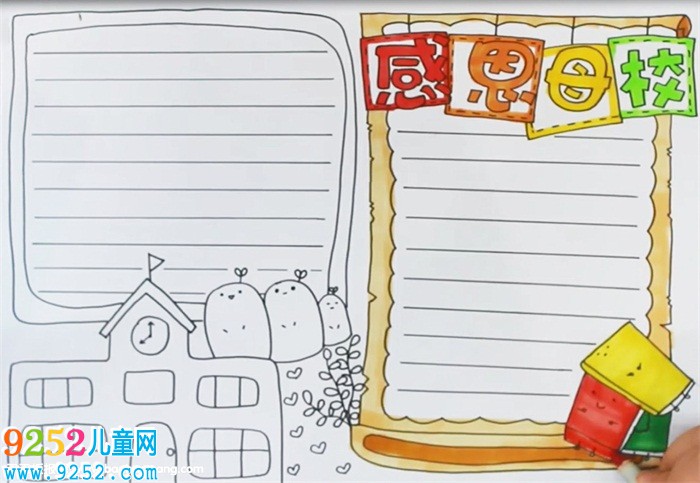 感恩母校
9252儿童网
www.9252.com